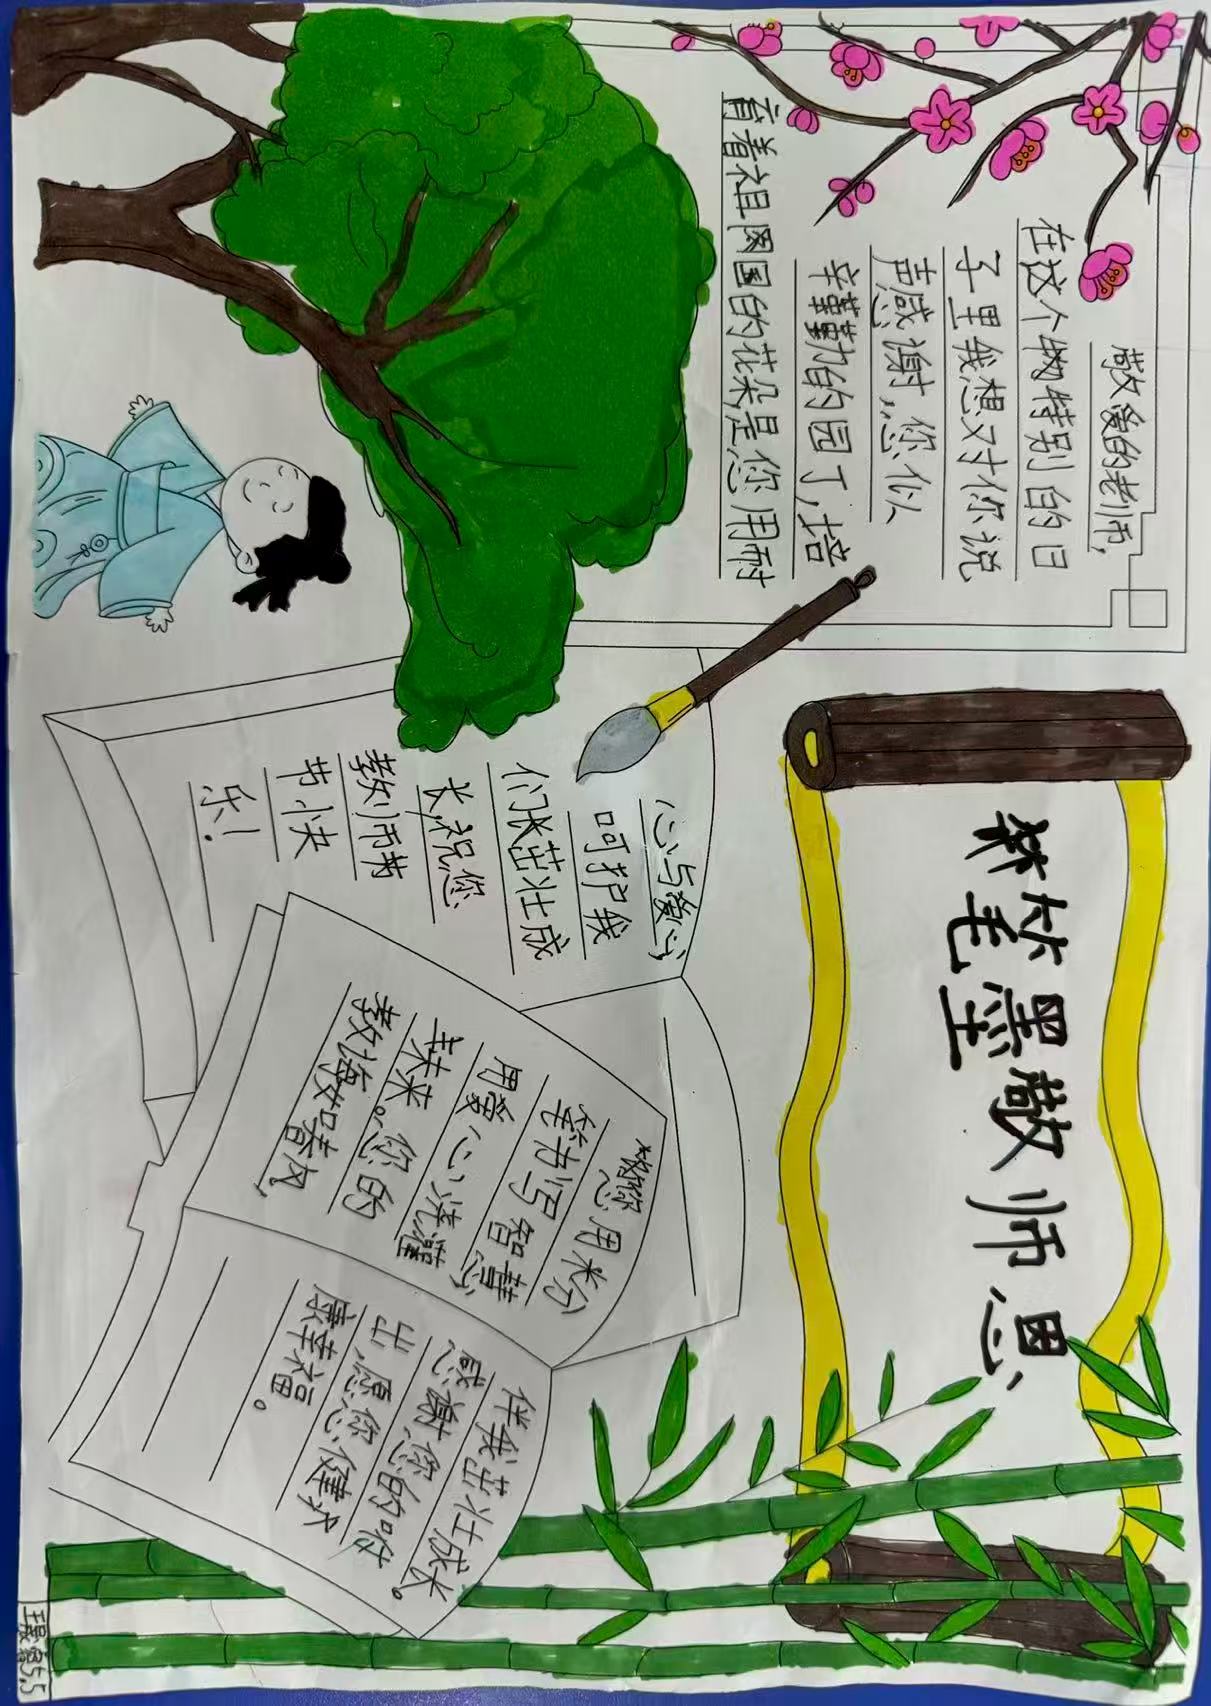 笔墨敬师恩
敬爱的老师,
在这个特别的日
子里我想对你说
声感谢,您似
辛勤的园丁,培
育着祖国的花朵是您用耐
心与爱心
呵护我
们茁壮成
长,祝您
教师节
节快
乐!
您用粉
笔书写智慧
用爱心浇灌
未来。您的
教诲如春风,
伴我茁壮成长。
感谢您的付
出,愿您健
康幸福。